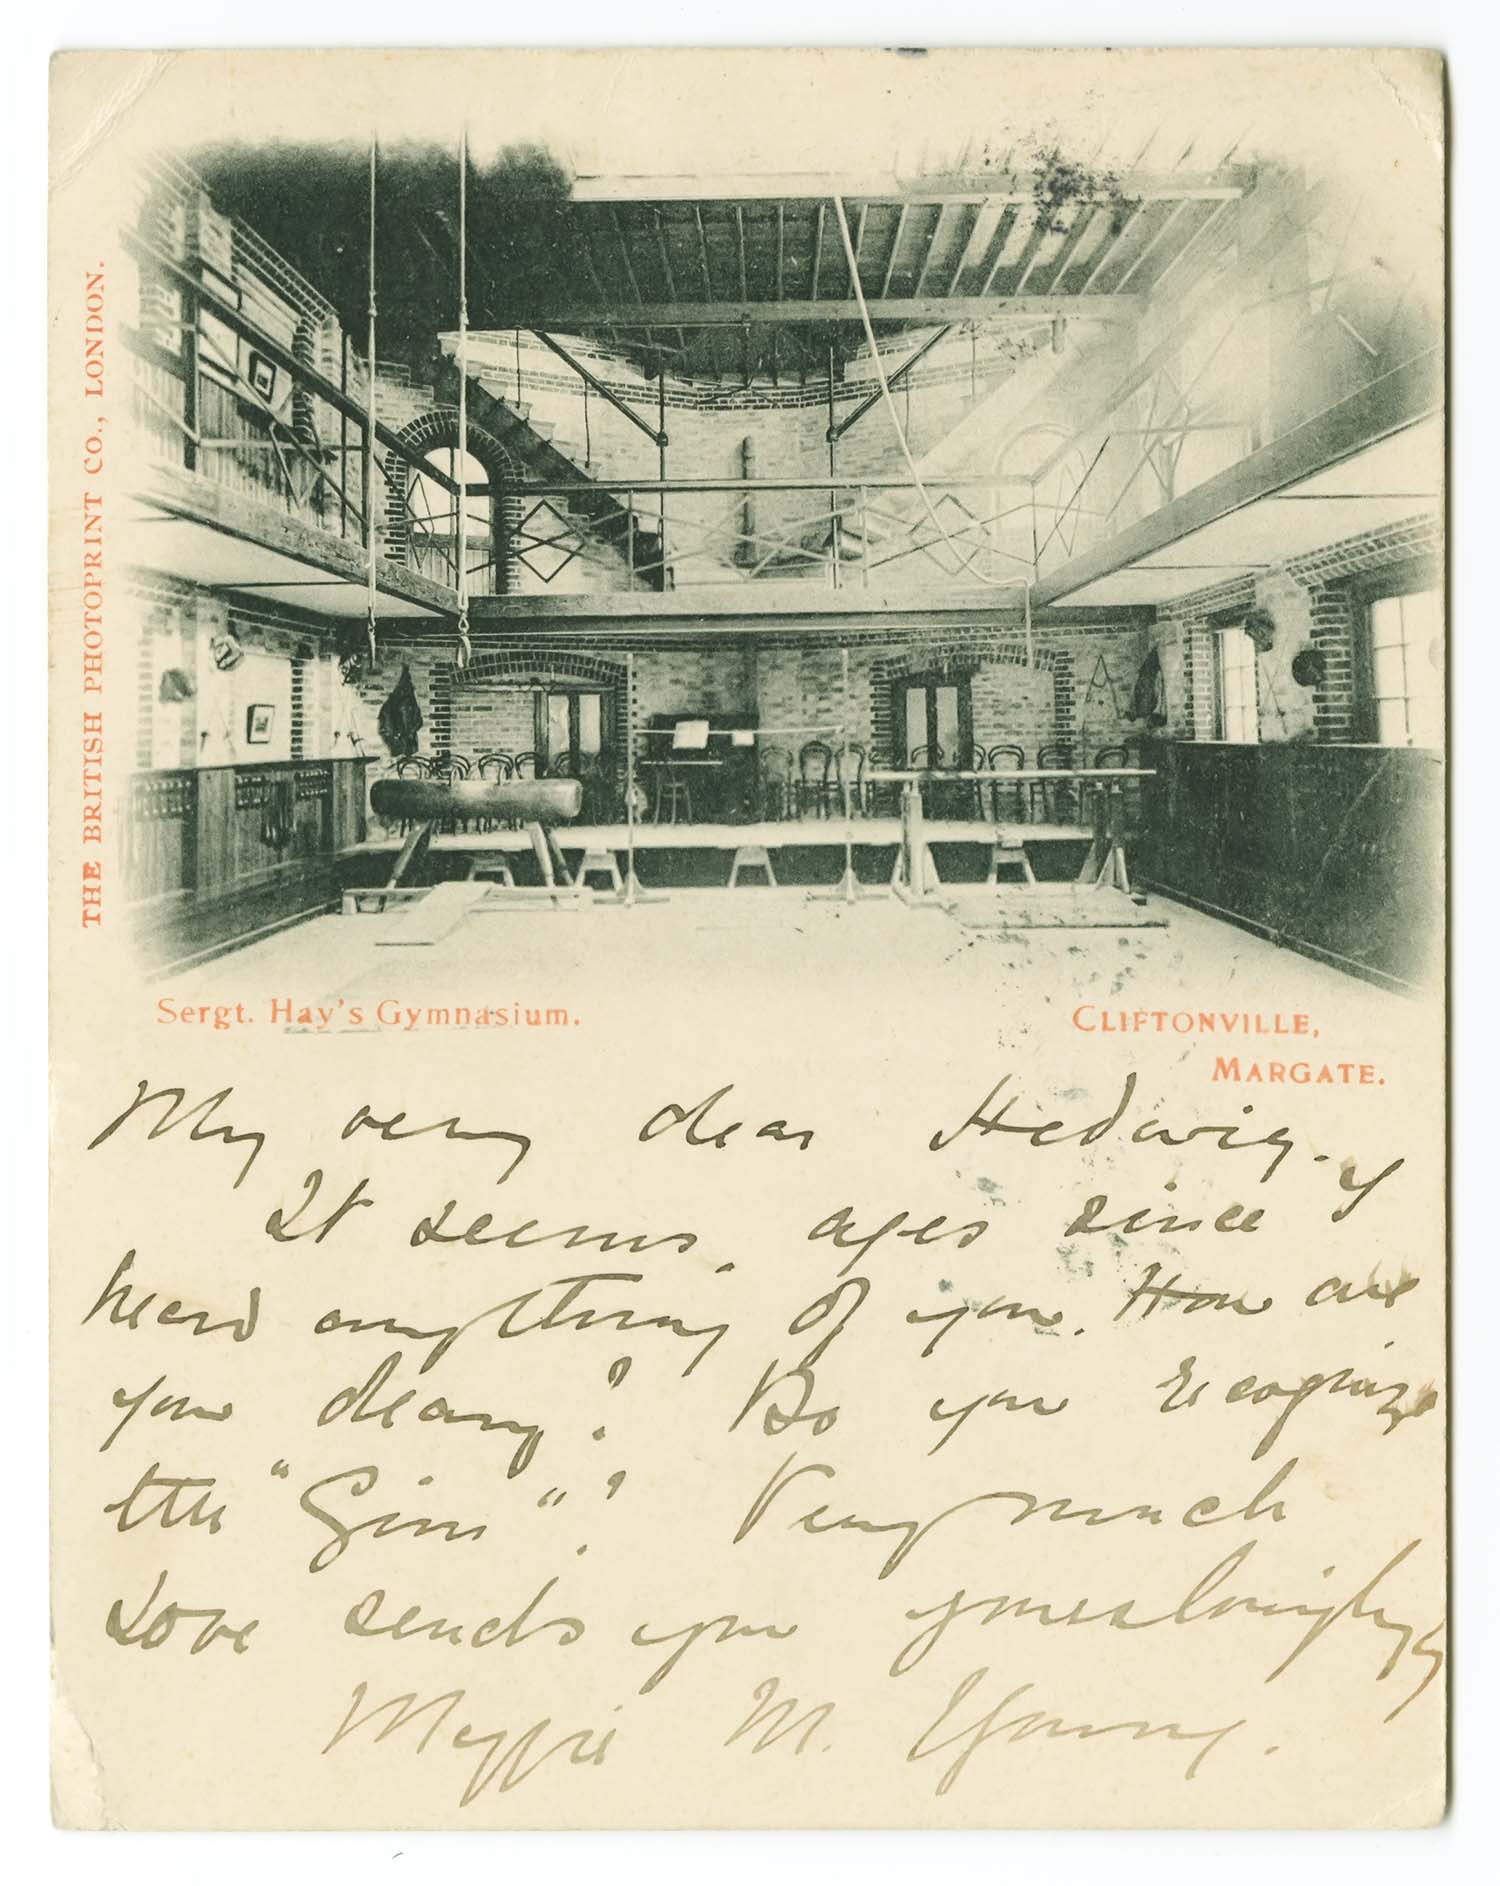 THE BRITISH PHOTOPRINT CO., LONDON.
Sergt. Hay's Gymnasium.
CLIFTONVILLE,
MARGATE.
My very dear Hedwig.
It seems ages since I
heard anything of you. How are
you deary? Do you recognize
the "Gim"? Very much
Love sends you yours lovingly
M. Young.